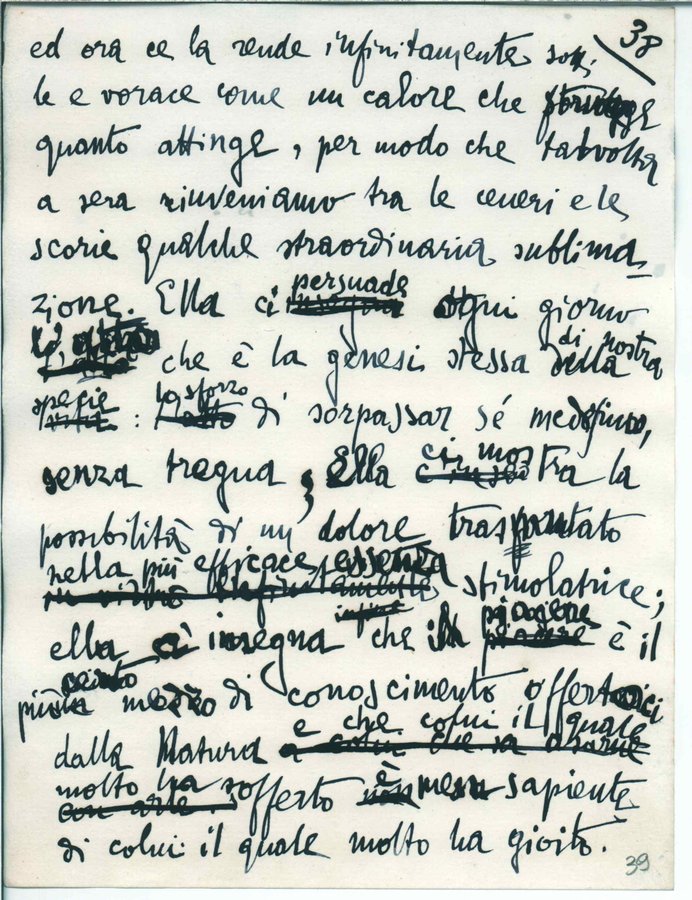 38
ed ora ce la rende infinitamente sotti
le e vorace come un calore che strugge
quanto attinge, per modo che talvolta
a sera rinveniamo tra le ceneri e le
scorie qualche straordinaria sublima_
zione. Ella ci persuade ogni giorno
che è la genesi stessa di nostra
specie : lo sforzo di sorpassar sé medesimo,
senza tregua; Ella ci mostra la
possibilità di un dolore trasmutato
nella più efficace essenza stimolatrice;
ella ci insegna che il piacere è il
più certo mezzo di conoscimento offertoci
dalla Natura e che colui il quale
molto ha sofferto è men sapiente
di colui il quale molto ha gioito.
39